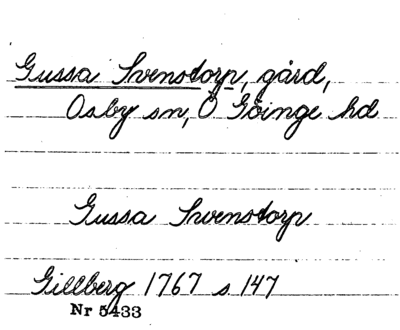 Gussa Svenstorp, gård,
Osby sn, Ö Göinge hd
Gussa Swenstorp
Gillberg 1767 s 147
Nr 5433